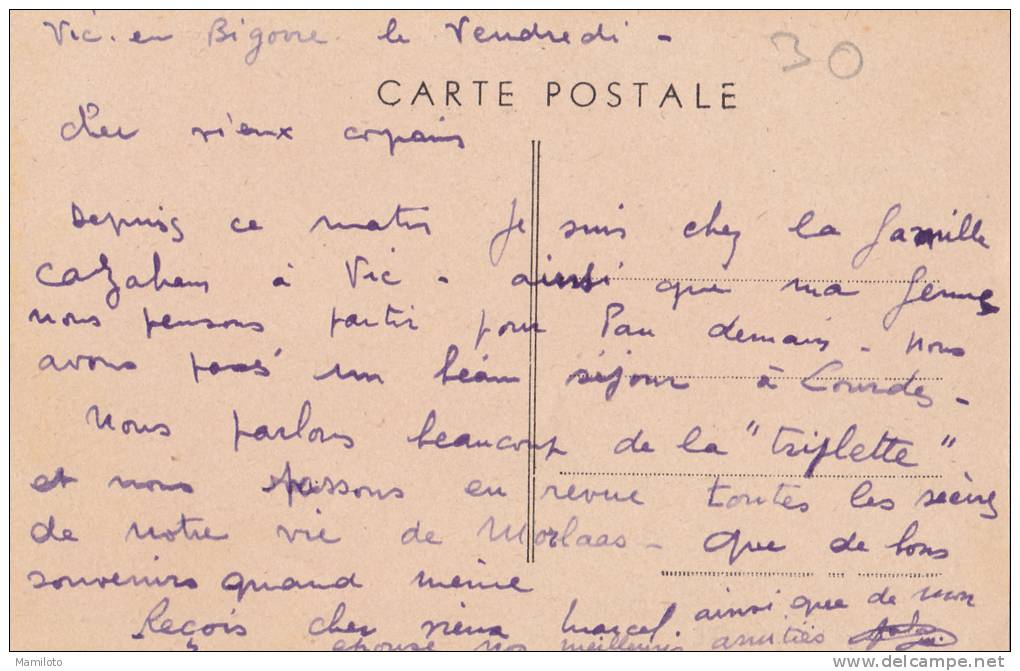 Vic-en Bigorre le Vendredi -
30
CARTE POSTALE
Cher vieux copains
Depuis ce matin Je suis chez la famille
à Vic - ainsi que ma femme
nous pensons partir pour Pau demain - nous
avons passé un beau séjour à Lourdes -
Nous parlons beaucoup de la "triplette"
et nous passons en revue toutes les scènes
de notre vie de Morlaas - Que de bons
souvenirs quand même
Reçois cher vieux Marcel ainsi que de mon
épouse nos meilleures amitiés
Mamiloto
delcampe.net